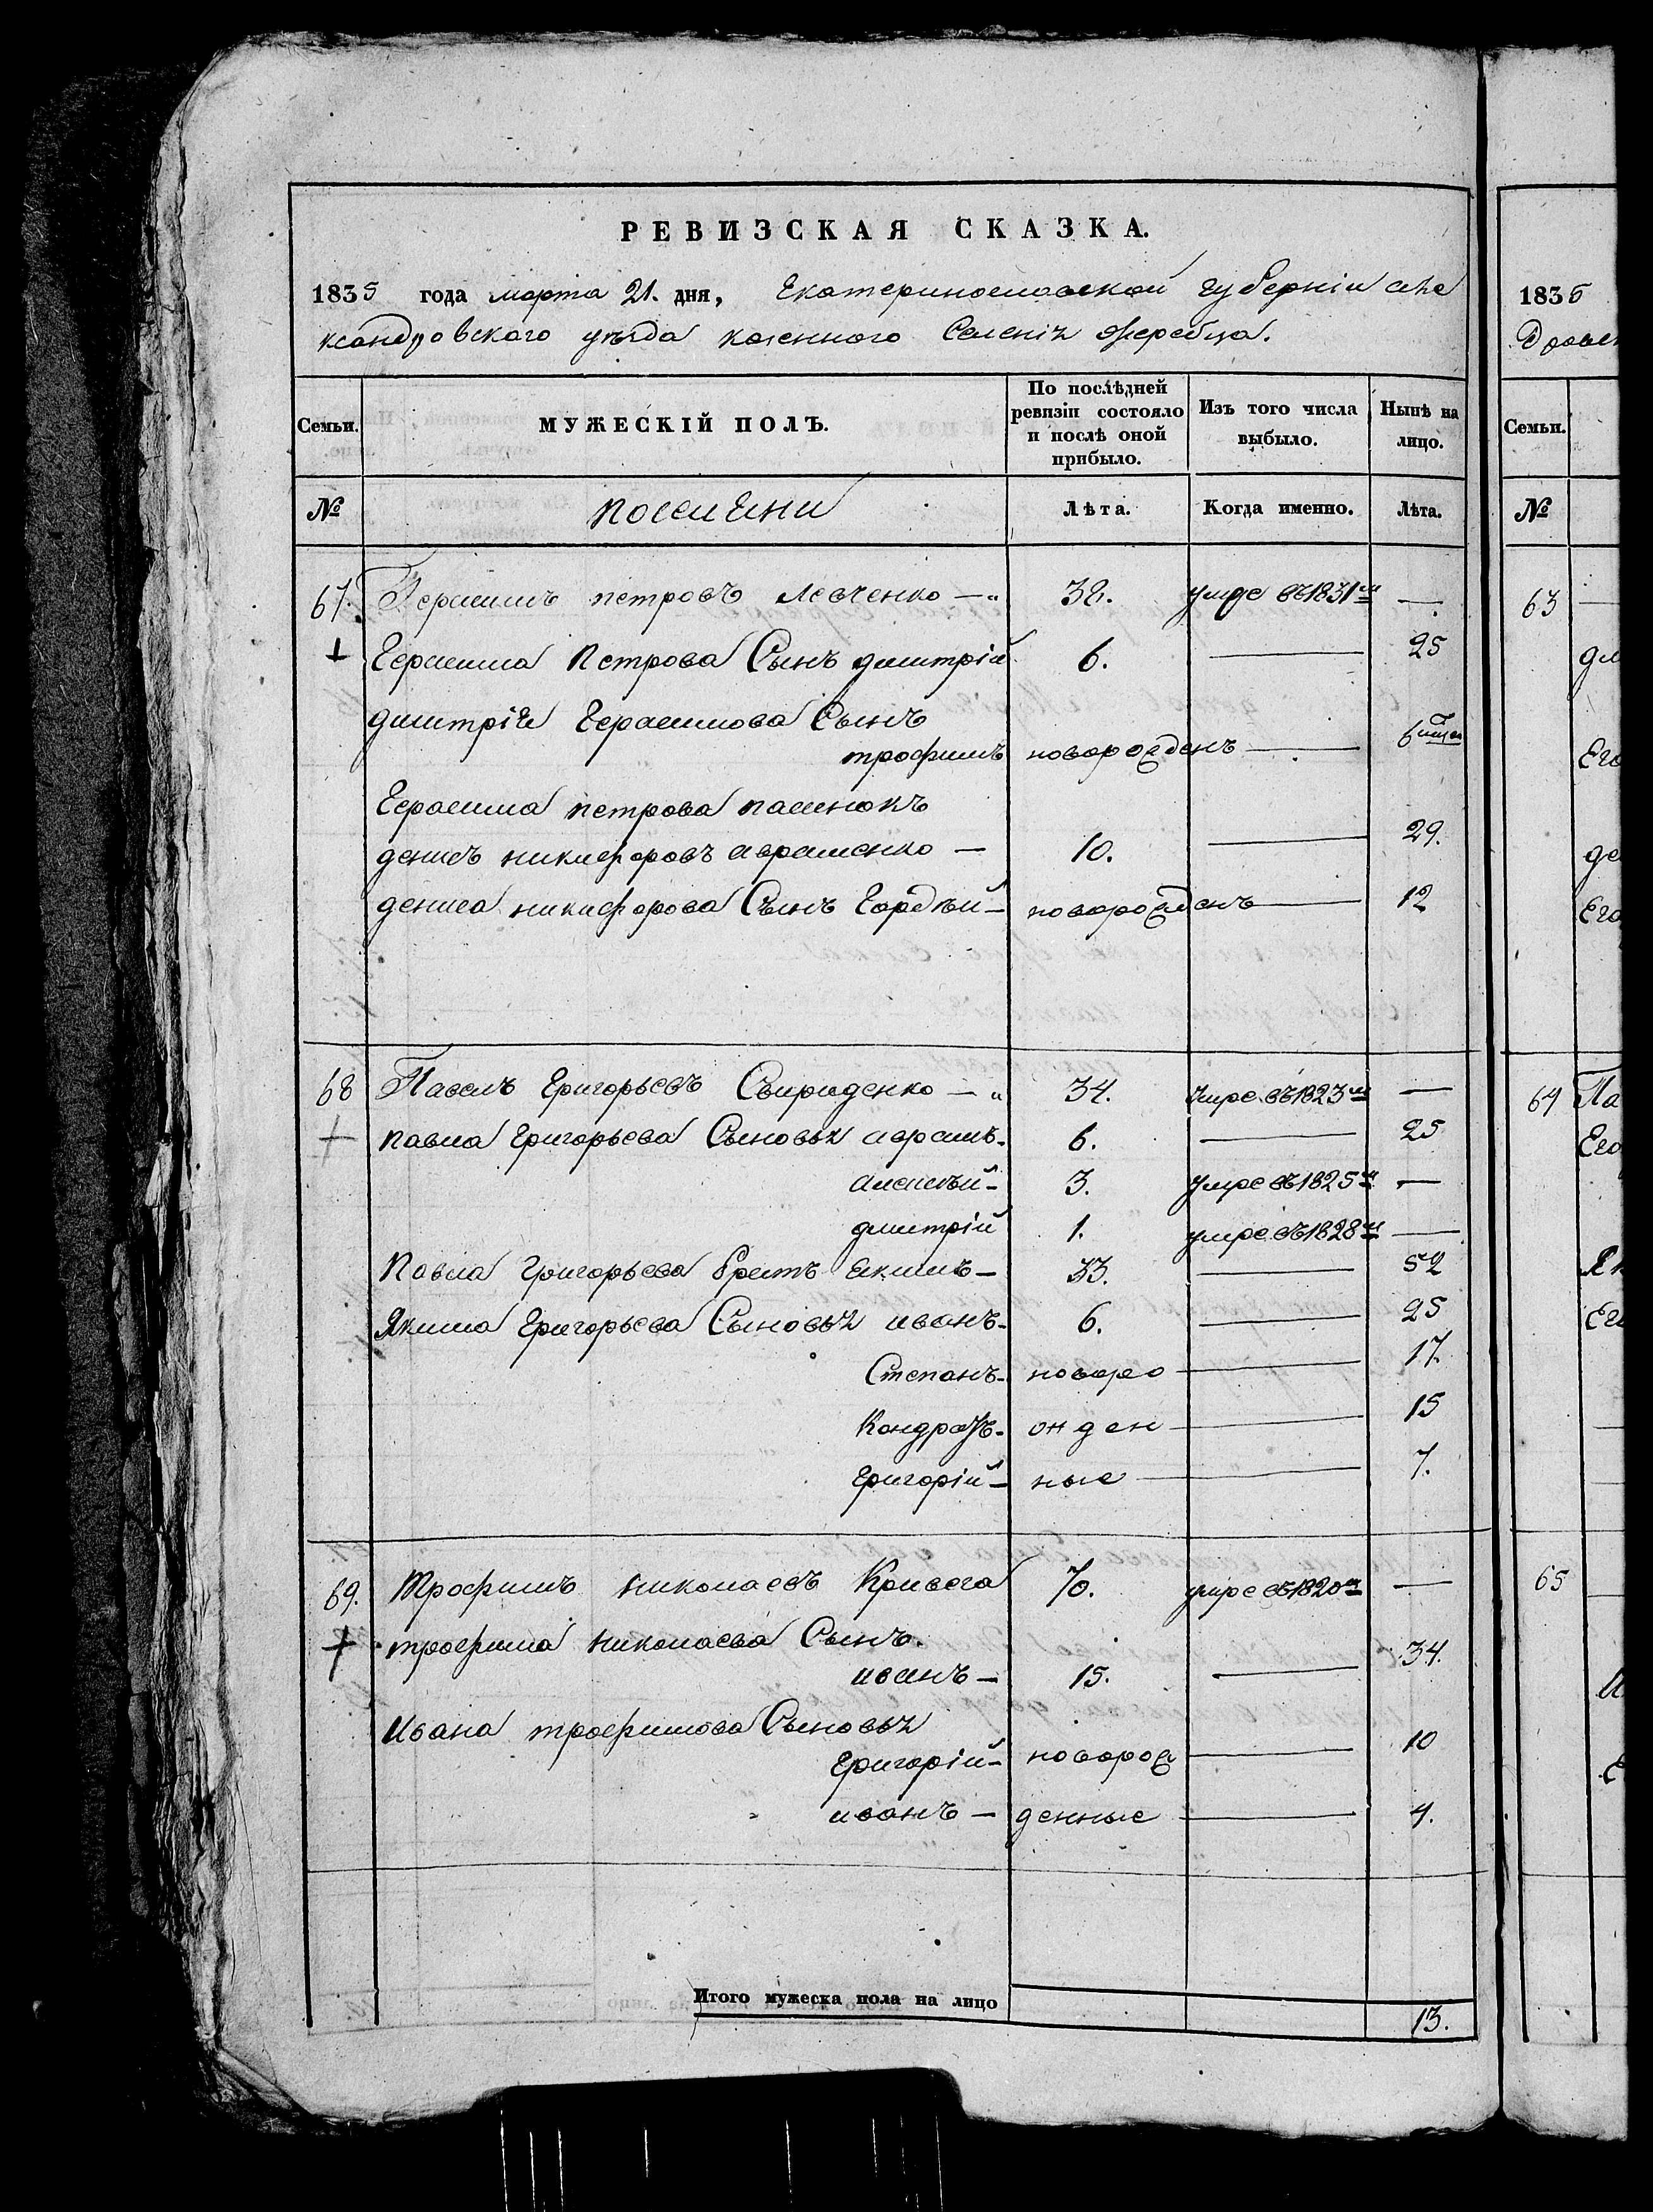 РЕВИЗСКАЯ СКАЗКА.
1835 года марта 21. дня, Екатеринославской губерніи але
ксандровского уѣзда казенного Селенія Жеребца.
Семьи. МУЖЕСКІЙ ПОЛЪ. По послѣдней ревизіи состояло и послѣ оной прибыло. Изъ того числа выбыло. Нынѣ на лицо.
№ поселяни Лѣта. Когда именно. Лѣта.
67. Герасимъ петровъ Левченко — 38. умре въ 1831м —
+ Герасима Петрова Сынъ димитрій 6. — 25
димитрія Герасимова Сынъ
трофимъ новорожденъ — 6
Герасима петрова пасинокъ
денисъ никифоровъ авраменко — 10. — 29.
дениса никифорова Сынъ Гордѣй — новорожденъ — 12
68 Павелъ Григорьевъ Свириденко — 34. умре въ 1823м —
+ павла Григорьева Сыновья аврамъ — 6. — 25
алексѣй — 3. умре въ 1825м —
дмитрій 1. умре въ 1828м —
Павла Григорьева братъ Якимъ — 33. — 52
Якима Григорьева Сыновья иванъ — 6. — 25
Степанъ — новоро — 17.
Кондратъ — жден — 15
Григорій — ные — 7.
69. Трофимъ николаевъ Кривега 70. умре въ 1820м —
+ трофима николаева Сынъ.
иванъ — 15. — 34.
Ивана трофимова Сыновья
Григорій — новорож — 10
иванъ — денные — 4.
Итого мужеска пола на лицо 13.
1835
Семьи.
№
63
64 Па
Его
65